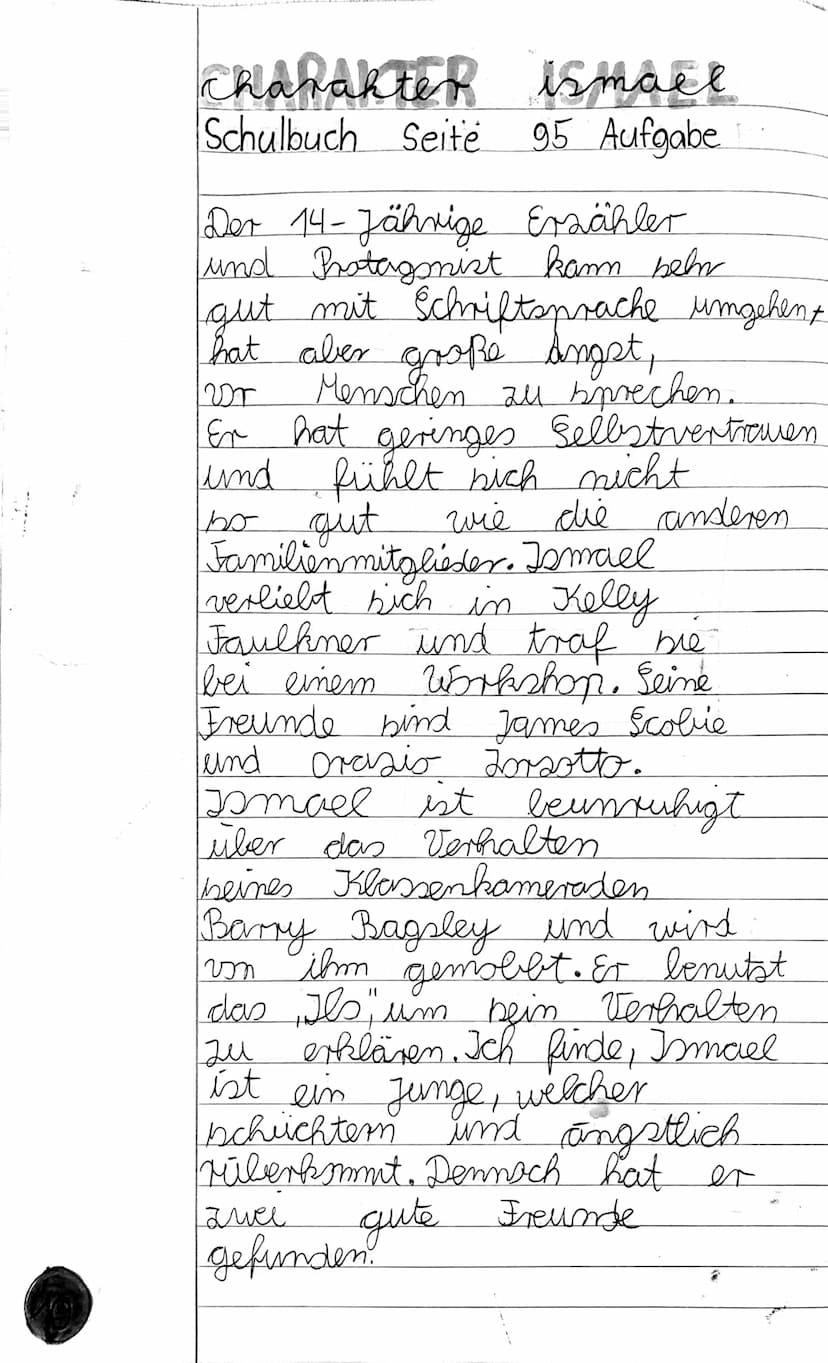 Charakter ismael
Schulbuch Seite 95 Aufgabe
Der 14-Jährige Erzähler
und Protagonist kann sehr
gut mit Schriftsprache umgehen,
hat aber große Angst,
vor Menschen zu sprechen.
Er hat geringes Selbstvertrauen
und fühlt sich nicht
so gut wie die anderen
Familienmitglieder. Ismael
verliebt sich in Kelly
Faulkner und traf sie
bei einem Workshop. Seine
Freunde sind James Scobie
und Orazio Zorzotto.
Ismael ist beunruhigt
über das Verhalten
seines Klassenkameraden
Barry Bagsley und wird
von ihm gemobbt. Er benutzt
das „ILS", um sein Verhalten
zu erklären. Ich finde, Ismael
ist ein Junge, welcher
schüchtern und ängstlich
rüberkommt. Dennoch hat er
zwei gute Freunde
gefunden.